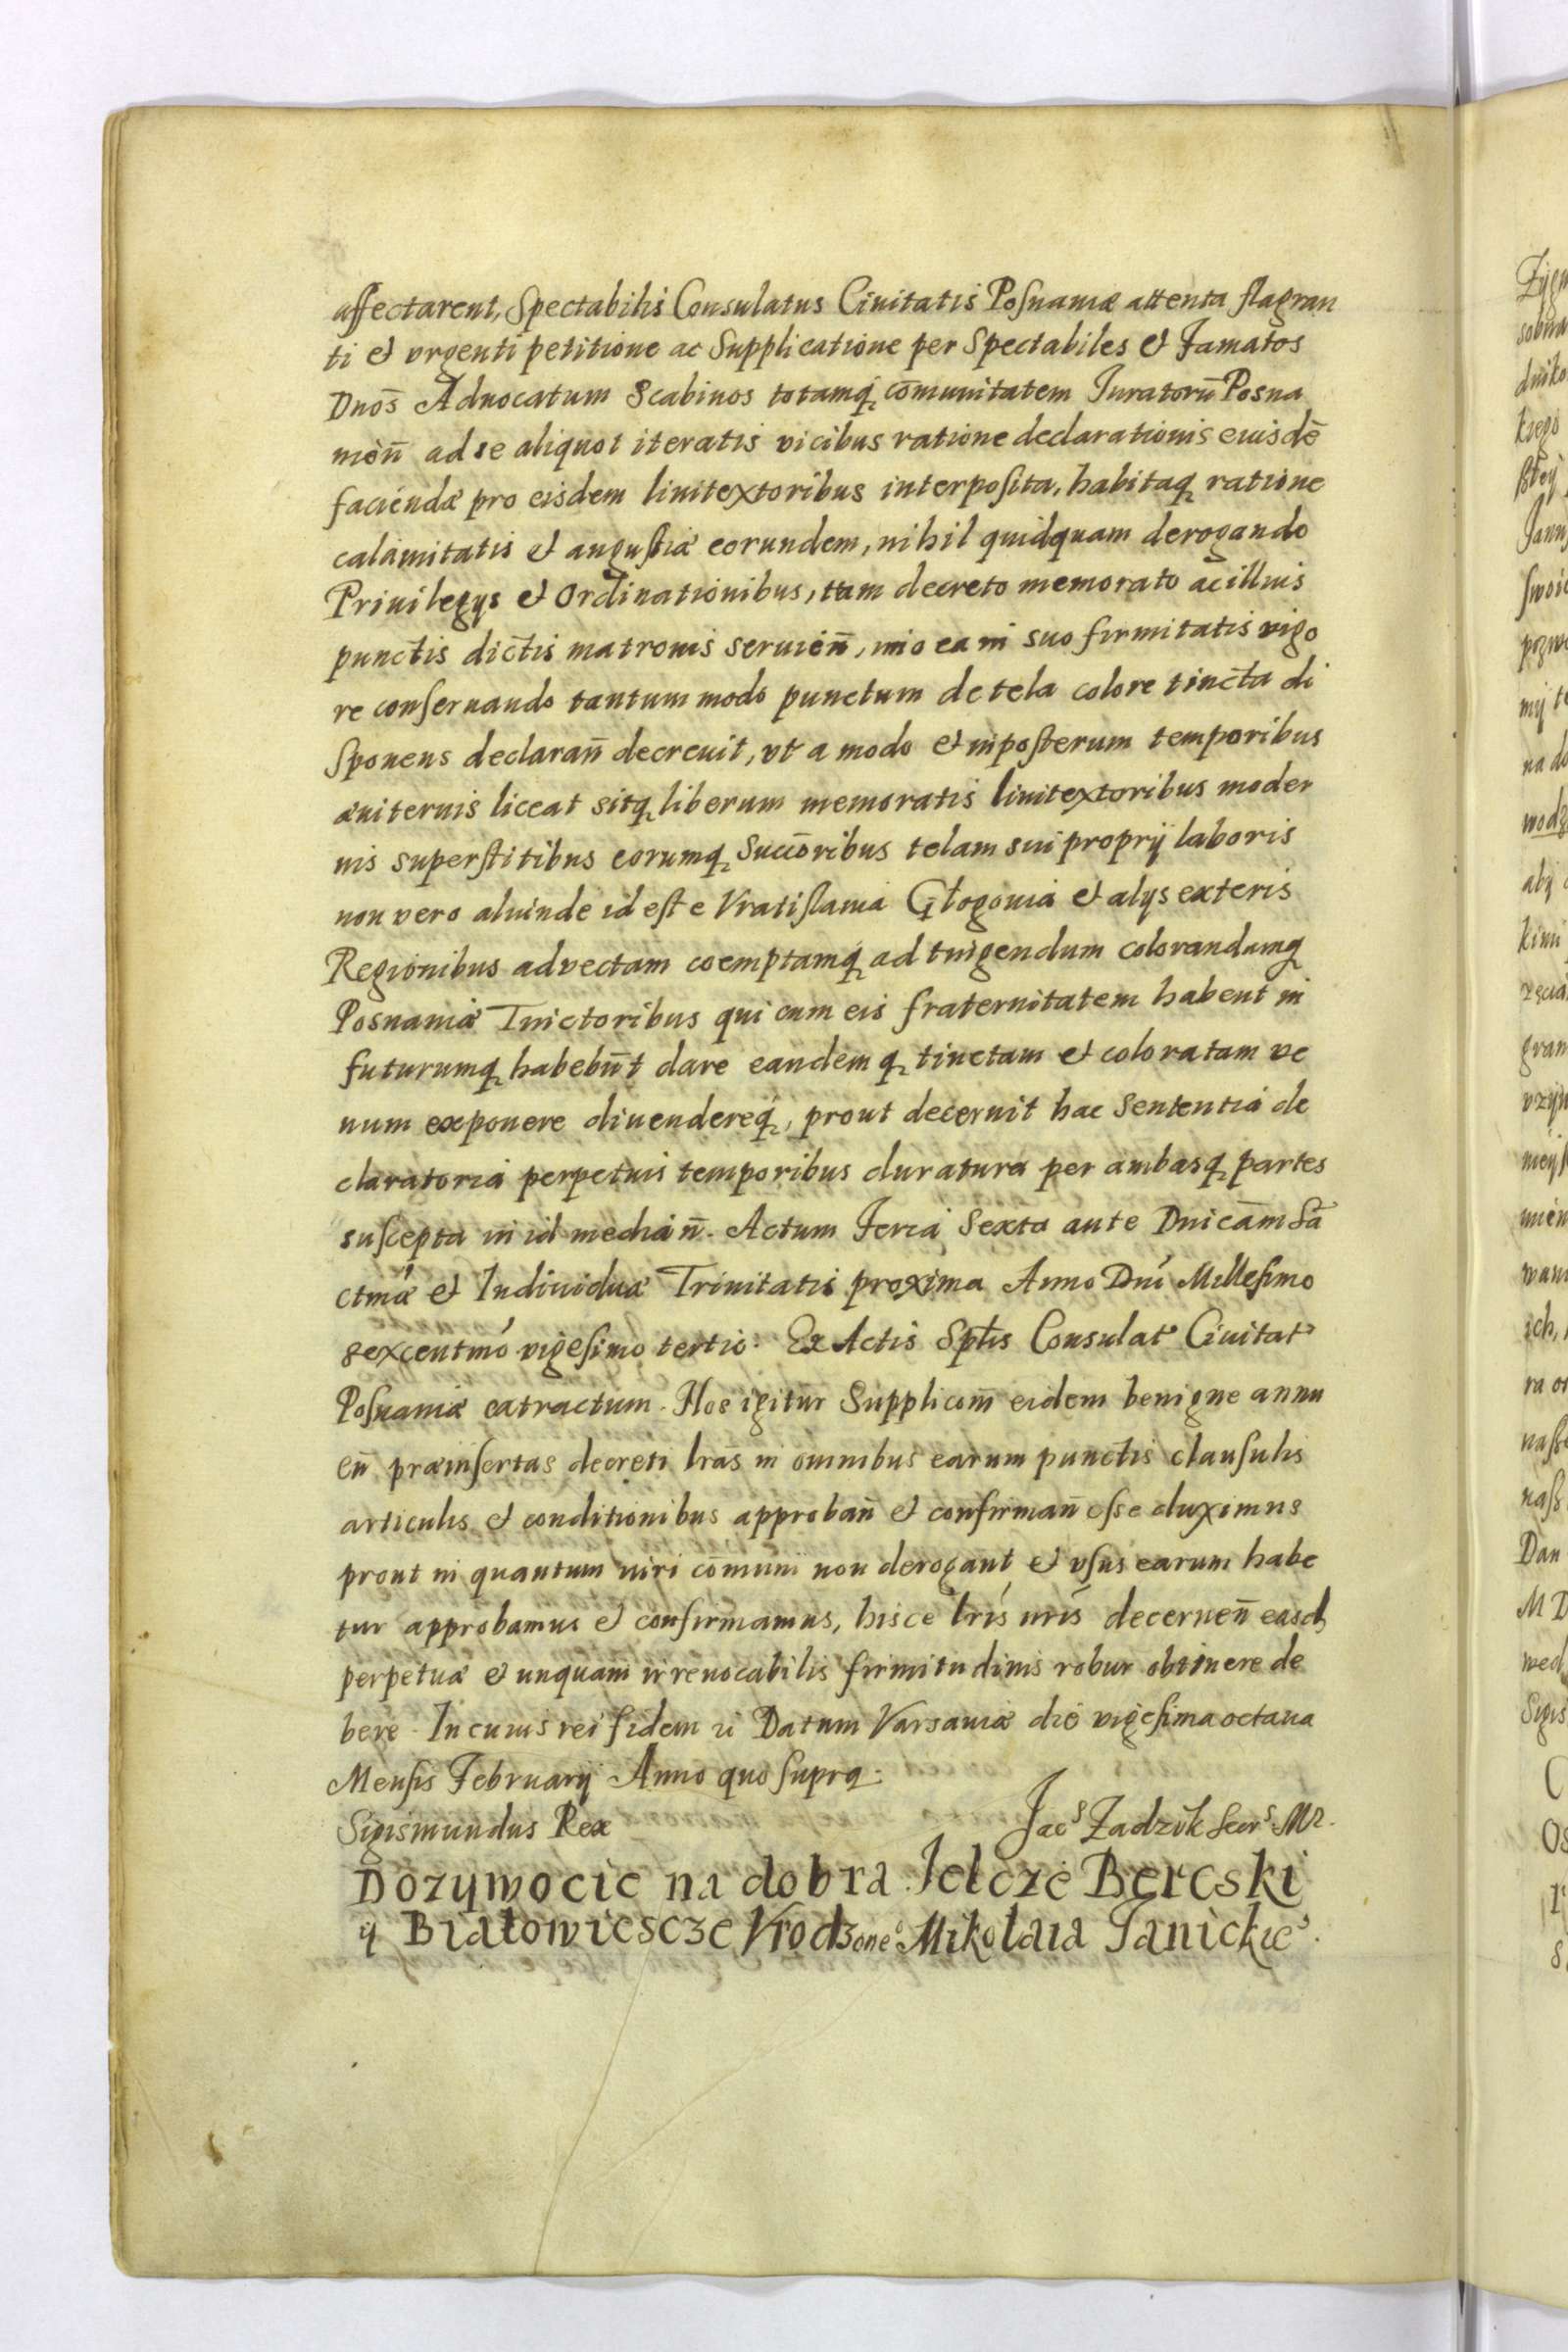 affectarent, Spectabilis Consulatus Ciuitatis Posnaniæ attenta flagran
ti et vrgenti petitione ac Supplicatione per Spectabiles et Famatos
Dnos̄ Aduocatum Scabinos totamq́ꝫ com̄unitatem Iuratorū Posna
nień ad se aliquot iteratis vicibus ratione declarationis eiusdē
faciendæ pro eisdem linitextoribus interposita, habitaqꝫ ratione
calamitatis et angustiæ eorundem, nihil quidquam derogando
Priuilegys et Ordinationibus, tam decreto memorato ac illius
punctis dictis matronis seruień, imo ea in suo firmitatis vigo
re conseruando tantummodo punctum de tela colore tincta di
sponens declarań decreuit, vt a modo et inposterum temporibus
æuiternis liceat sitqꝫ liberum memoratis linitextoribus moder
nis superstitibus eorumqꝫ Succōribus telam sui proprij laboris
non vero aliunde id est e Vratislauia Głogouia et alys exteris
Regionibus advectam coemptamq́ꝫ ad tingendum colorandamqꝫ
Posnaniæ Tinctoribus qui cum eis fraternitatem habent in
futurumqꝫ habebūt dare eandemqꝫ tinctam et coloratam ve
num exponere diuendereq́ꝫ, prout decernit hac Sententia de
claratoria perpetuis temporibus duratura per ambasqꝫ partes
suscepta in id mediań. Actum Feria Sexta ante Dnicam̄ Sā
ctmǽ et Indiuiduæ Trinitatis proxima Anno Dnī Millesimo
sexcentmó vigesimo tertio. Ex Actis Sptis̄ Consulat⁹ Ciuitat⁹
Posnaniæ extractum. Nos igitur Supplicom̄ eidem benigne annu
eń præinsertas decreti lrās in omnibus earum punctis clausulis
articulis et conditionibus approbań et confirmań esse duximus
prout in quantum iuri com̄uni non derogant et vsus earum habe
tur approbamus et confirmamus, hisce lrīs nrīs decerneń easdꝫ
perpetuæ et unquam irreuocabilis firmitudinis robur obtinere de
bere. In cuius rei fidem Datum Varsauiæ die vigesima octaua
Mensis February Anno quo supra.
Sigismundus Rex Jacˢ Zadzik Secrˢ Mr.
Dozywocie na dobra Jelcze Bereski
y Białowiescze Vrodzone⁰ Mikołaia Janickie⁰.